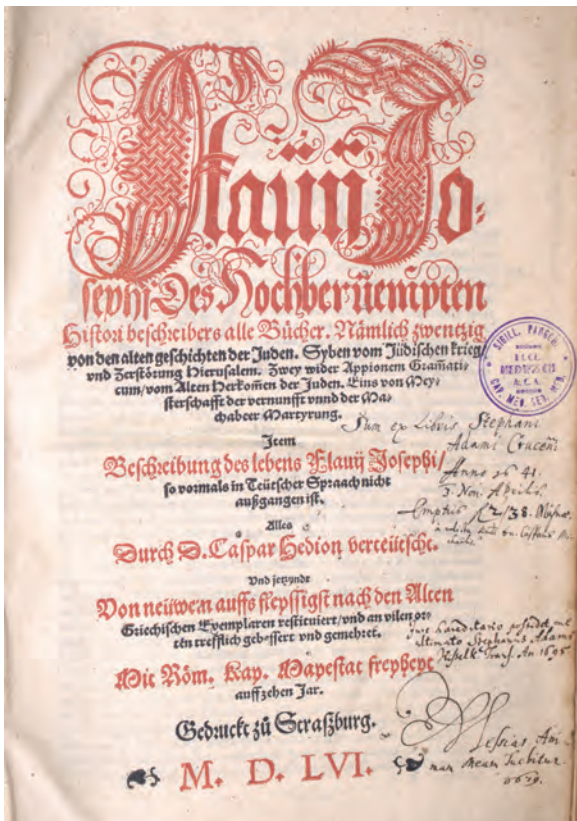 Flauij Jo-
sephi Des Hochberuempten
Histori beschreibers alle Bücher. Nämlich zwentzig
von den alten geschichten der Juden. Syben vom Jüdischen krieg/
vnd Zerstörung Hierusalem. Zwey wider Appionem Gramati-
cum/vom Alten Herkomen der Juden. Eins von Mey-
sterschafft der vernunfft vnnd der Ma-
chabeer Martyrung.
Item
Beschreibung des lebens Flauij Josephi/
so vormals in Teütscher Spraach nicht
außgangen ist.
Alles
Durch D. Caspar Hedion verteütscht.
Vnd jetzundt
Von neüwem auffs fleyssigst nach den Alten
Griechischen Exemplaren restituiert/vnd an vilen or-
ten trefflich gebessert vnd gemehret.
Mit Röm. Kay. Mayestat freyheyt
auff zehen Jar.
Gedruckt zü Straßburg.
M. D. LVI.
SIGILL. PAROCH.
CAP. MED. GEN.
Sum ex Libris Stephani
Adami
Anno 16 41.
Aprilis.
possidet me
Stephanus Adami
An 1698
Messias Ani-
mam Meam